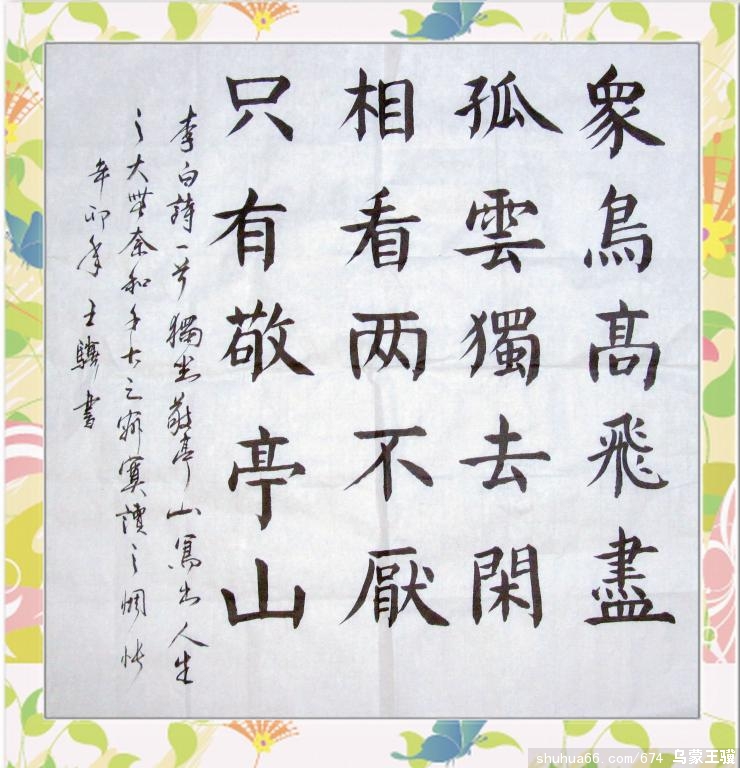 眾鳥髙飛盡
孤雲獨去閑
相看两不厭
只有敬亭山
李白詩一首獨坐敬亭山寫出人生
之大無奈和千古之寂寞讀之惆悵
辛卯年王駿書
shuhua66.com/674 乌蒙王骏